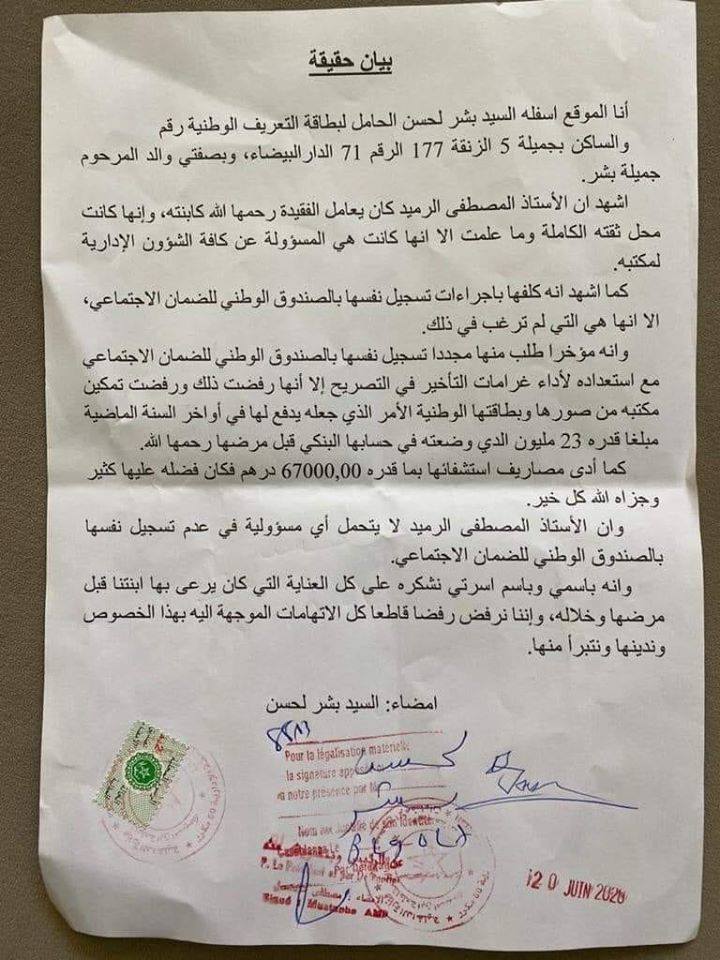 بيان حقيقة
أنا الموقع اسفله السيد بشر لحسن الحامل لبطاقة التعريف الوطنية رقم
والساكن بجميلة 5 الزنقة 177 الرقم 71 الدارالبيضاء، وبصفتي والد المرحوم
جميلة بشر.
اشهد ان الأستاذ المصطفى الرميد كان يعامل الفقيدة رحمها الله كابنته، وإنها كانت
محل ثقته الكاملة وما علمت الا انها كانت هي المسؤولة عن كافة الشؤون الإدارية
لمكتبه.
كما اشهد انه كلفها باجراءات تسجيل نفسها بالصندوق الوطني للضمان الاجتماعي،
الا انها هي التي لم ترغب في ذلك.
وانه مؤخرا طلب منها مجددا تسجيل نفسها بالصندوق الوطني للضمان الاجتماعي
مع استعداده لأداء غرامات التأخير في التصريح إلا أنها رفضت ذلك ورفضت تمكين
مكتبه من صورها وبطاقتها الوطنية الأمر الذي جعله يدفع لها في أواخر السنة الماضية
مبلغا قدره 23 مليون الدي وضعته في حسابها البنكي قبل مرضها رحمها الله.
كما أدى مصاريف استشفائها بما قدره 67000,00 درهم فكان فضله عليها كثير
وجزاه الله كل خير.
وان الأستاذ المصطفى الرميد لا يتحمل أي مسؤولية في عدم تسجيل نفسها
بالصندوق الوطني للضمان الاجتماعي.
وانه باسمي وباسم اسرتي نشكره على كل العناية التي كان يرعى بها ابنتنا قبل
مرضها وخلاله، وإننا نرفض رفضا قاطعا كل الاتهامات الموجهة اليه بهذا الخصوص
وندينها ونتبرأ منها.
امضاء: السيد بشر لحسن
Pour la légalisation matérielle
la signature apposée
notre présence par M
Casablanca Le
20 JUIN 2020